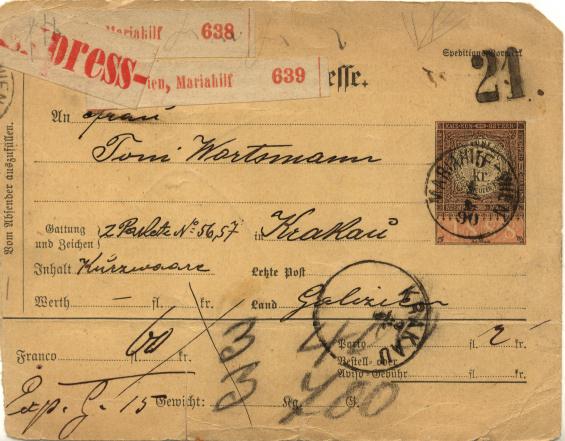 Mariahilf 638
Express-
Wien, Mariahilf 639
esse.
21.
WIEN
An Frau
Toni Wortsmann
MARIAHILF WIEN
90
kr.
Vom Absender auszufüllen.
Gattung und Zeichen 2 Pakete No 56,57 in Krakau
Inhalt Kurzwaare Letzte Post
Werth — fl. kr. Land Galizien
KRAKAU
Franco 60 fl. kr. 3 Porto fl. 2 kr.
Bestell- oder
Aviso-Gebühr fl. kr.
Exp. G. 15 Gewicht: 3 Kg. 700 G.